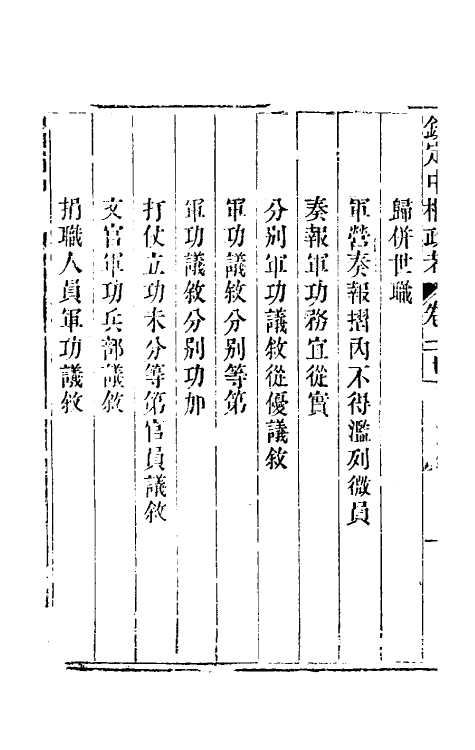 欽定中樞政考 卷二十
歸併世職
軍營奏報摺內不得濫列微員
奏報軍功務宜從實
分别軍功議敘從優議敘
軍功議敘分别等第
軍功議敘分别功加
打仗立功未分等第官員議敘
文官軍功兵部議敘
捐職人員軍功議敘